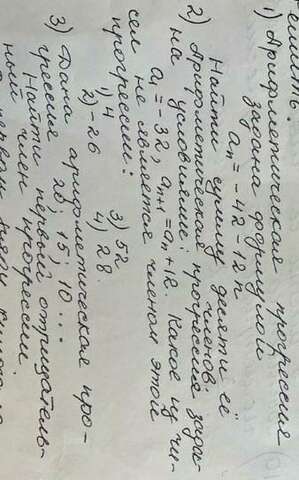 1) Арифметическая прогрессия
задана формулой
aₙ = -42 - 12n
Найти сумму десяти её
членов.
2) Арифметическая прогрессия зада-
на условиями:
a₁ = -32, aₙ₊₁ = aₙ + 12. Какое из чи-
сел не является членом этой
прогрессии:
1) 4 3) 52
2) -26 4) 28.
3) Дана арифметическая про-
грессия 20; 15; 10 ...
Найти первый отрицатель-
ный член прогрессии.